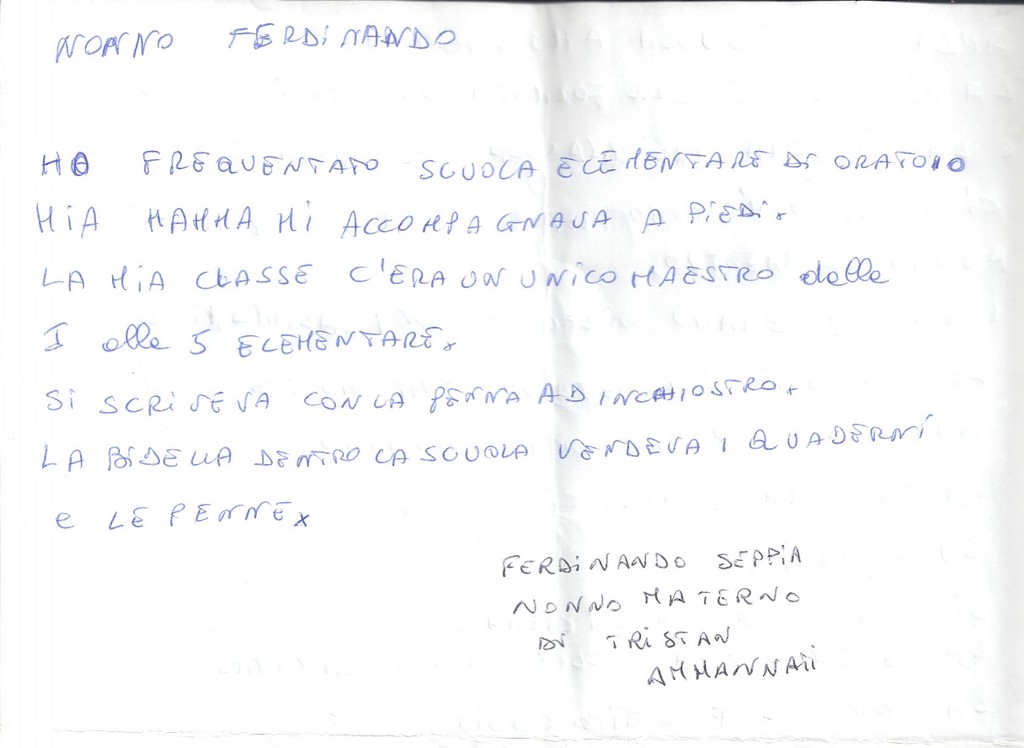 NONNO FERDINANDO
HO FREQUENTATO SCUOLA ELEMENTARE DI ORATOIO
MIA MAMMA MI ACCOMPAGNAVA A PIEDI.
LA MIA CLASSE C'ERA UN UNICO MAESTRO dalla
I alla 5 ELEMENTARE.
SI SCRIVEVA CON LA PENNA AD INCHIOSTRO.
LA BIDELLA DENTRO LA SCUOLA VENDEVA I QUADERNI
e LE PENNE.
FERDINANDO SEPPIA
NONNO MATERNO
DI TRISTAN
AMMANNATI